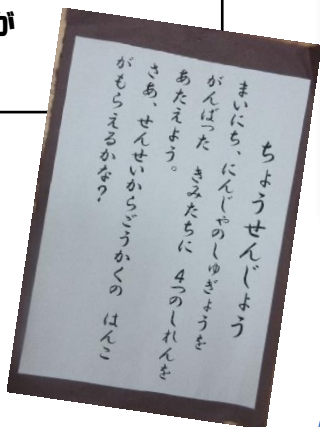 が
ちょうせんじょう
まいにち、にんじゃのしゅぎょうを
がんばった きみたちに 4つのしれんを
あたえよう。
さあ、せんせいからごうかくの はんこ
がもらえるかな?